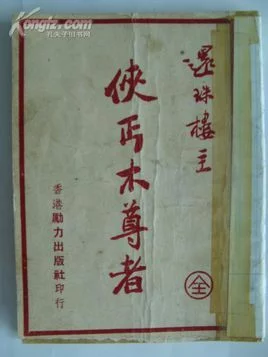 還珠樓主
俠丐木尊者
香港勵力出版社印行
全
孔夫子旧书网